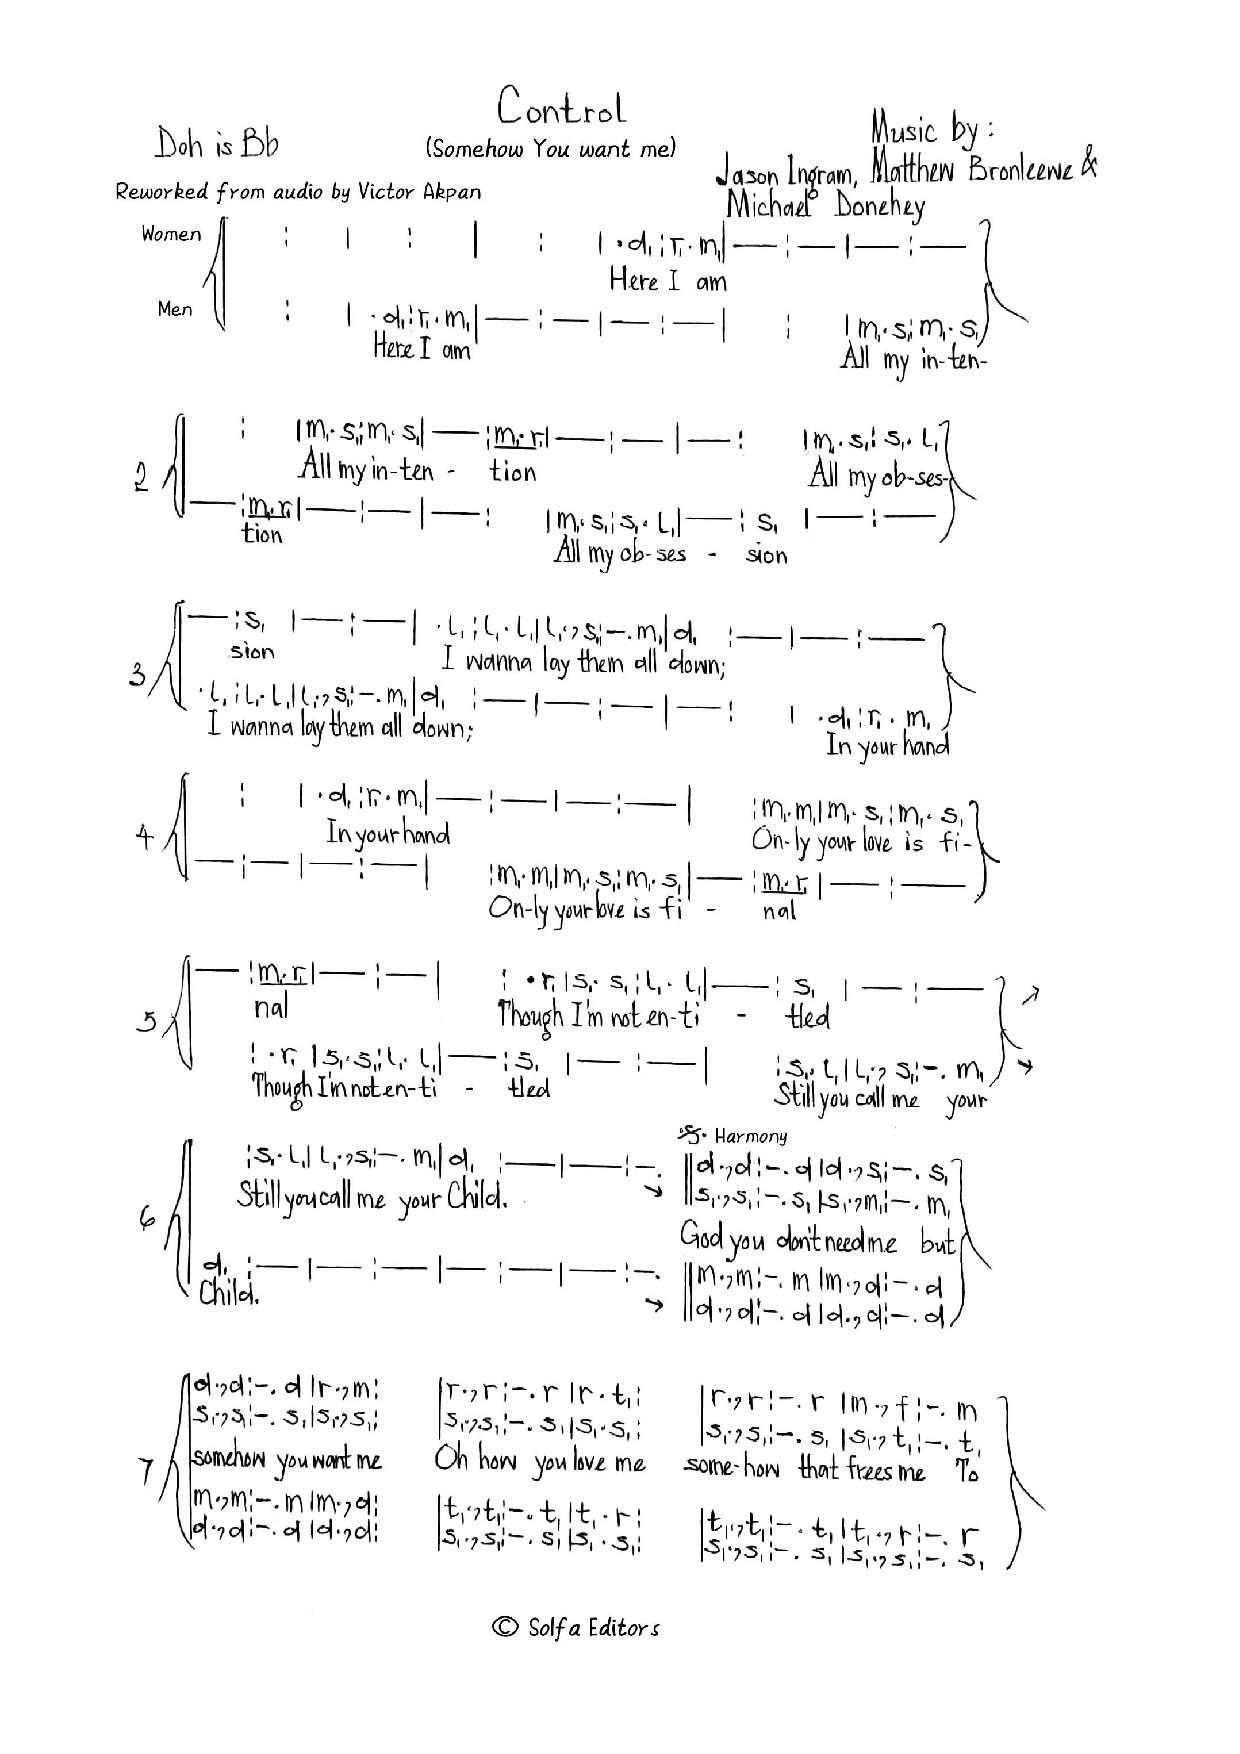 Control
Doh is Bb
(Somehow You want me)
Music by :
Jason Ingram, Matthew Bronleewe &
Michael Donehey
Reworked from audio by Victor Akpan
Women : | : | : | .d, : r, . m, | — : — | — : —
Here I am
Men : | .d, : r, . m, | — : — | — : — | : | m, . s, : m, . s,
Here I am All my in-ten-
2 : | m, . s, : m, . s, | — : m, . r, | — : — | — : | m, . s, : s, . l,
All my in-ten - tion All my ob-ses-
— : m, . r, | — : — | — : | m, . s, : s, . l, | — : s, | — : —
tion All my ob-ses - sion
3 — : s, | — : — | .l, : l, . l, | l, ., s, : — . m, | d, : — | — : —
sion I wanna lay them all down;
.l, : l, . l, | l, ., s, : — . m, | d, : — | — : — | — : | .d, : r, . m,
I wanna lay them all down; In your hand
4 : | .d, : r, . m, | — : — | — : — | : m, . m, | m, . s, : m, . s,
In your hand On-ly your love is fi-
— : — | — : — | : m, . m, | m, . s, : m, . s, | — : m, . r, | — : —
On-ly your love is fi - nal
5 — : m, . r, | — : — | : . r, | s, . s, : l, . l, | — : s, | — : —
nal Though I'm not en-ti - tled
: . r, | s, . s, : l, . l, | — : s, | — : — | : s, . l, | l, ., s, : — . m,
Though I'm not en-ti - tled Still you call me your
𝄋 Harmony
6 : s, . l, | l, ., s, : — . m, | d, : — | — : — . || d ., d : — . d | d ., s, : — . s,
s, ., s, : — . s, | s, ., m, : — . m,
Still you call me your Child. God you don't need me but
d, : — | — : — | — : — | — : — . || m ., m : — . m | m ., d : — . d
Child. d ., d : — . d | d ., d : — . d
7 d ., d : — . d | r ., m : | r ., r : — . r | r . t, : | r ., r : — . r | m ., f : — . m
s, ., s, : — . s, | s, ., s, : | s, ., s, : — . s, | s, . s, : | s, ., s, : — . s, | s, ., t, : — . t,
somehow you want me Oh how you love me some-how that frees me To
m ., m : — . m | m ., d : | t, ., t, : — . t, | t, . r : | t, ., t, : — . t, | t, ., r : — . r
d ., d : — . d | d ., d : | s, ., s, : — . s, | s, . s, : | s, ., s, : — . s, | s, ., s, : — . s,
© Solfa Editors